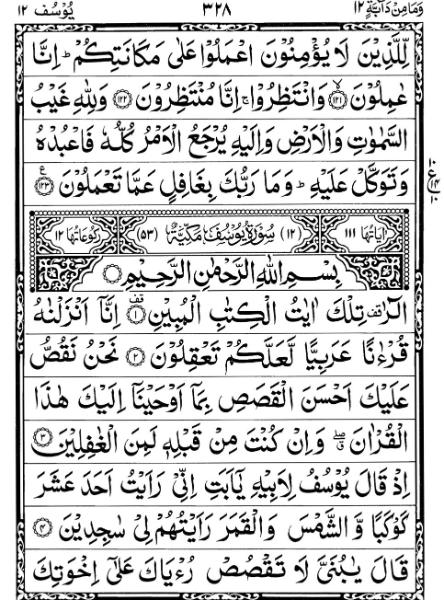 وَمَا مِنْ دَآبَّةٍ ١٢ ٣٢٨ يُوْسُف ١٢
لِّلَّذِيْنَ لَا يُؤْمِنُوْنَ اعْمَلُوْا عَلٰى مَكَانَتِكُمْ ؕ اِنَّا
عٰمِلُوْنَ ۙ﴿۱۲۱﴾ وَانْتَظِرُوْا ۚ اِنَّا مُنْتَظِرُوْنَ ﴿۱۲۲﴾ وَلِلّٰهِ غَيْبُ
السَّمٰوٰتِ وَالْاَرْضِ وَاِلَيْهِ يُرْجَعُ الْاَمْرُ كُلُّهٗ فَاعْبُدْهُ
وَتَوَكَّلْ عَلَيْهِ ؕ وَمَا رَبُّكَ بِغَافِلٍ عَمَّا تَعْمَلُوْنَ ﴿۱۲۳﴾ ع
اٰيَاتُهَا ١١١ (١٢) سُوْرَةُ يُوْسُفَ مَكِّيَّةٌ (٥٣) رُكُوْعَاتُهَا ١٢
بِسْمِ اللّٰهِ الرَّحْمٰنِ الرَّحِيْمِ
الٓرٰ ۫ تِلْكَ اٰيٰتُ الْكِتٰبِ الْمُبِيْنِ ۟﴿۱﴾ اِنَّاۤ اَنْزَلْنٰهُ
قُرْءٰنًا عَرَبِيًّا لَّعَلَّكُمْ تَعْقِلُوْنَ ﴿۲﴾ نَحْنُ نَقُصُّ
عَلَيْكَ اَحْسَنَ الْقَصَصِ بِمَاۤ اَوْحَيْنَاۤ اِلَيْكَ هٰذَا
الْقُرْاٰنَ ۖ وَاِنْ كُنْتَ مِنْ قَبْلِهٖ لَمِنَ الْغٰفِلِيْنَ ﴿۳﴾
اِذْ قَالَ يُوْسُفُ لِاَبِيْهِ يٰۤاَبَتِ اِنِّيْ رَاَيْتُ اَحَدَ عَشَرَ
كَوْكَبًا وَّالشَّمْسَ وَالْقَمَرَ رَاَيْتُهُمْ لِيْ سٰجِدِيْنَ ﴿۴﴾
قَالَ يٰبُنَيَّ لَا تَقْصُصْ رُءْيَاكَ عَلٰۤى اِخْوَتِكَ